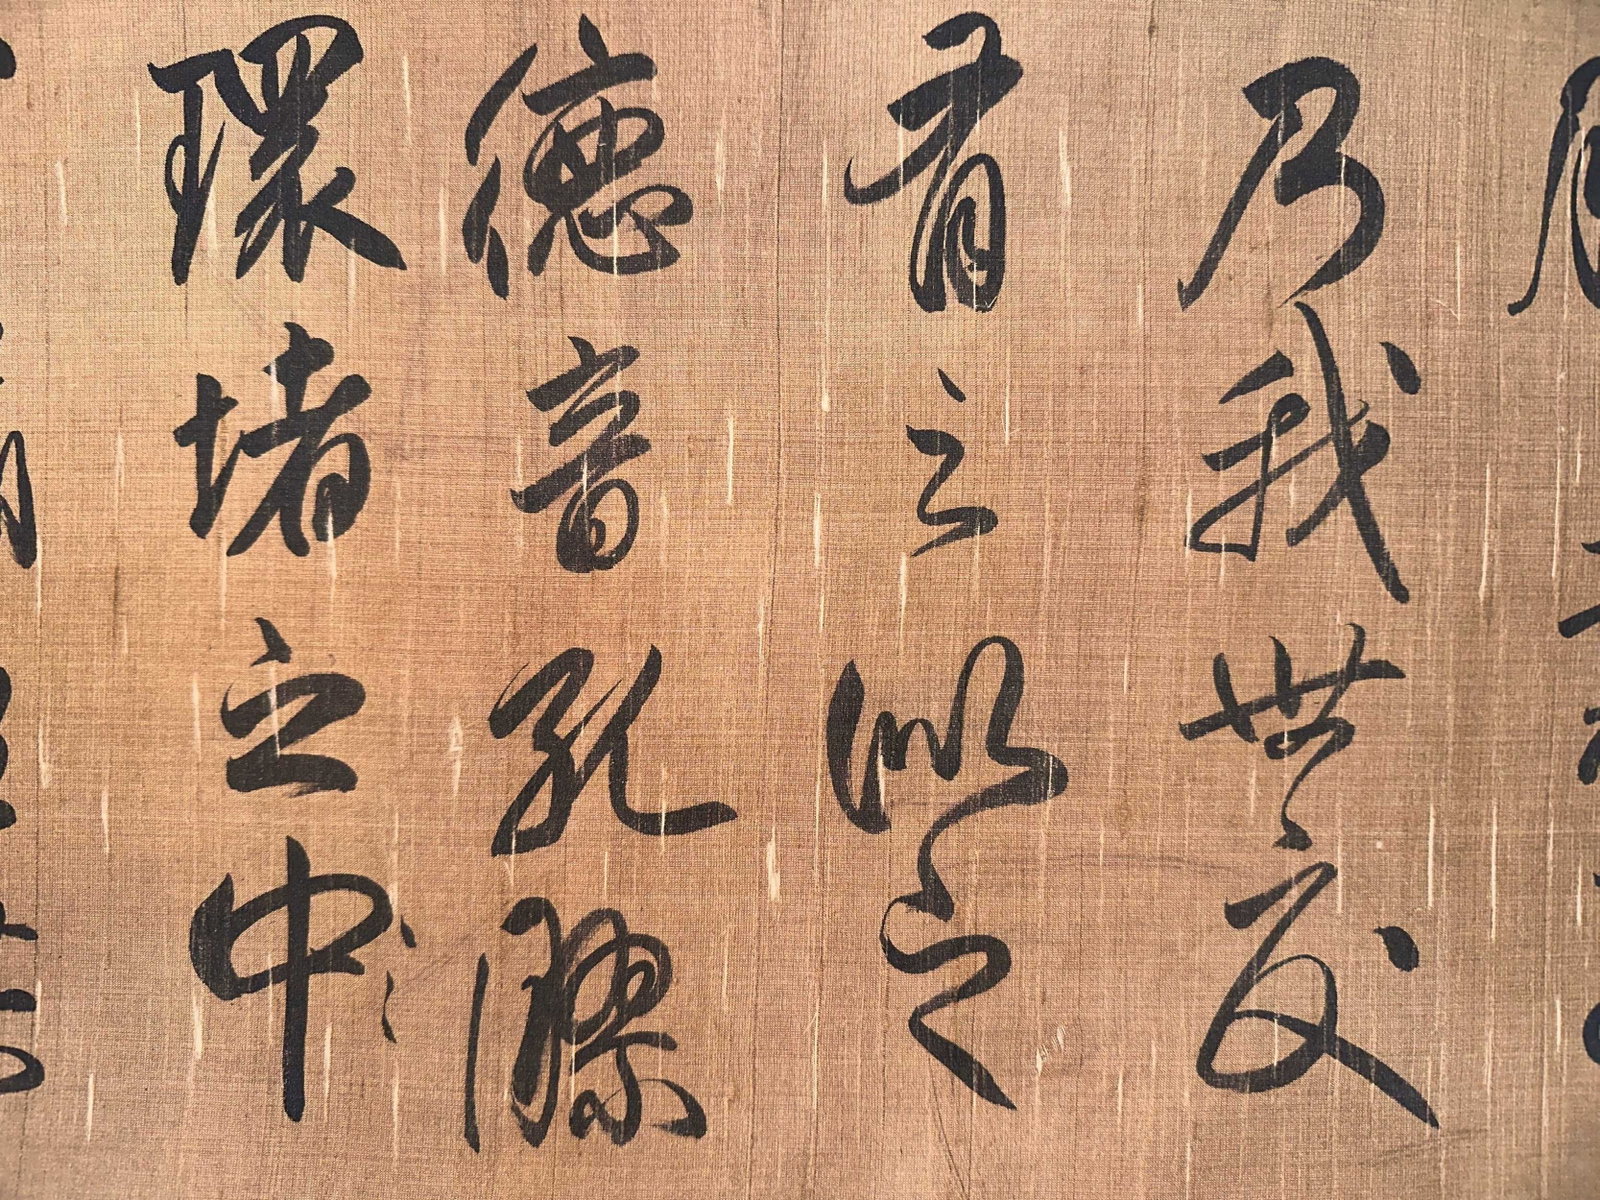 乃我世交
有之似之
德音孔膠
環堵之中